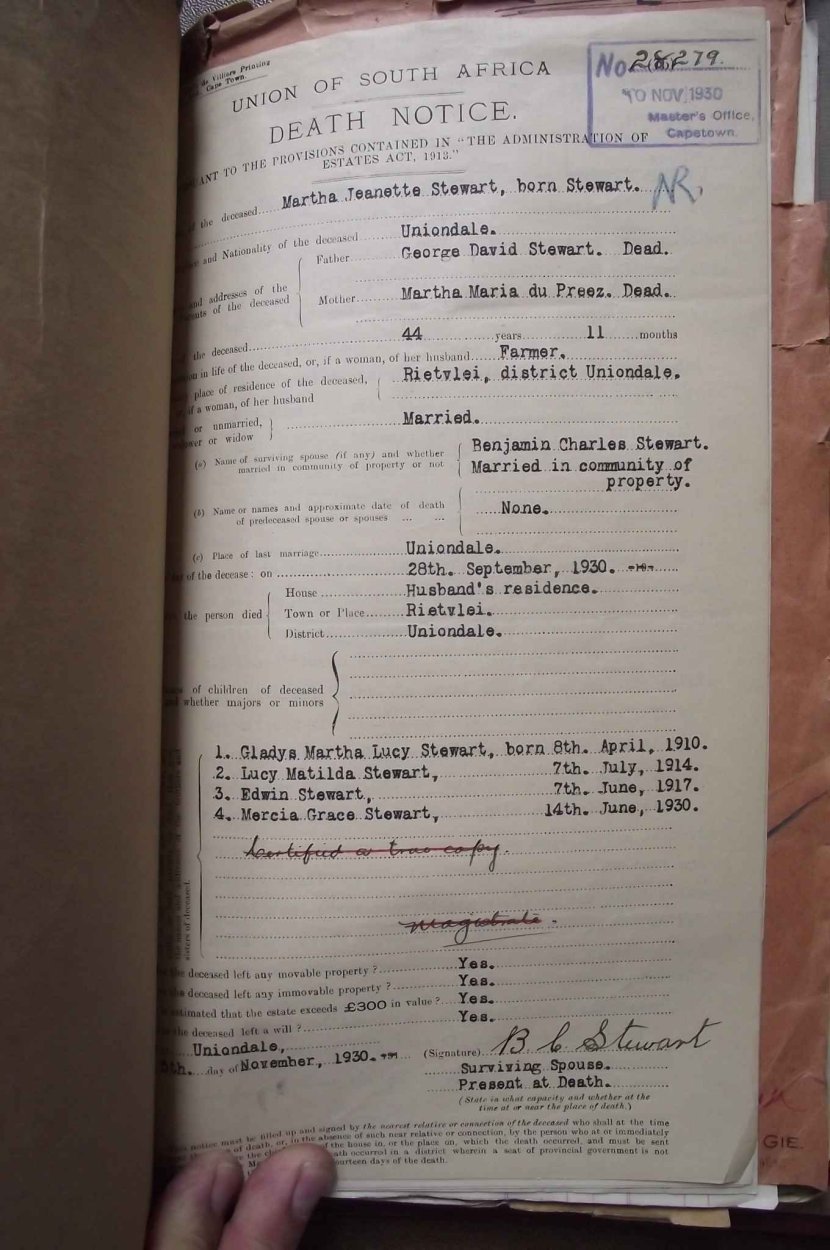 de Villiers Printing
Cape Town.
No 28279.
10 NOV 1930
Master's Office,
Capetown.
UNION OF SOUTH AFRICA
DEATH NOTICE.
TO THE PROVISIONS CONTAINED IN "THE ADMINISTRATION OF
ESTATES ACT, 1913."
of the deceased Martha Jeanette Stewart, born Stewart. NR.
and Nationality of the deceased Uniondale.
and addresses of the
of the deceased
Father George David Stewart. Dead.
Mother Martha Maria du Preez. Dead.
the deceased 44 years 11 months
in life of the deceased, or, if a woman, of her husband Farmer.
place of residence of the deceased, Rietvlei, district Uniondale.
if a woman, of her husband
or unmarried, Married.
or widow
(a) Name of surviving spouse (if any) and whether
married in community of property or not
Benjamin Charles Stewart.
Married in community of
property.
(b) Name or names and approximate date of death
of predeceased spouse or spouses ... ...
None.
(c) Place of last marriage Uniondale.
of the decease : on 28th. September, 1930.
the person died
House Husband's residence.
Town or Place Rietvlei.
District Uniondale.
of children of deceased
whether majors or minors
1. Gladys Martha Lucy Stewart, born 8th. April, 1910.
2. Lucy Matilda Stewart, 7th. July, 1914.
3. Edwin Stewart, 7th. June, 1917.
4. Mercia Grace Stewart, 14th. June, 1930.
Certified a true copy.
Magistrate.
sisters of deceased.
the deceased left any movable property ? Yes.
the deceased left any immovable property ? Yes.
estimated that the estate exceeds £300 in value ? Yes.
the deceased left a will ? Yes.
Uniondale,
day of November, 1930.
(Signature) B C Stewart
Surviving Spouse.
Present at Death.
(State in what capacity and whether at the
time at or near the place of death.)
notice must be filled up and signed by the nearest relative or connection of the deceased who shall at the time
of death, or, in the absence of such near relative or connection, by the person who at or immediately
of the house in, or the place on, which the death occurred, and must be sent
death occurred in a district wherein a seat of provincial government is not
fourteen days of the death.
GIE